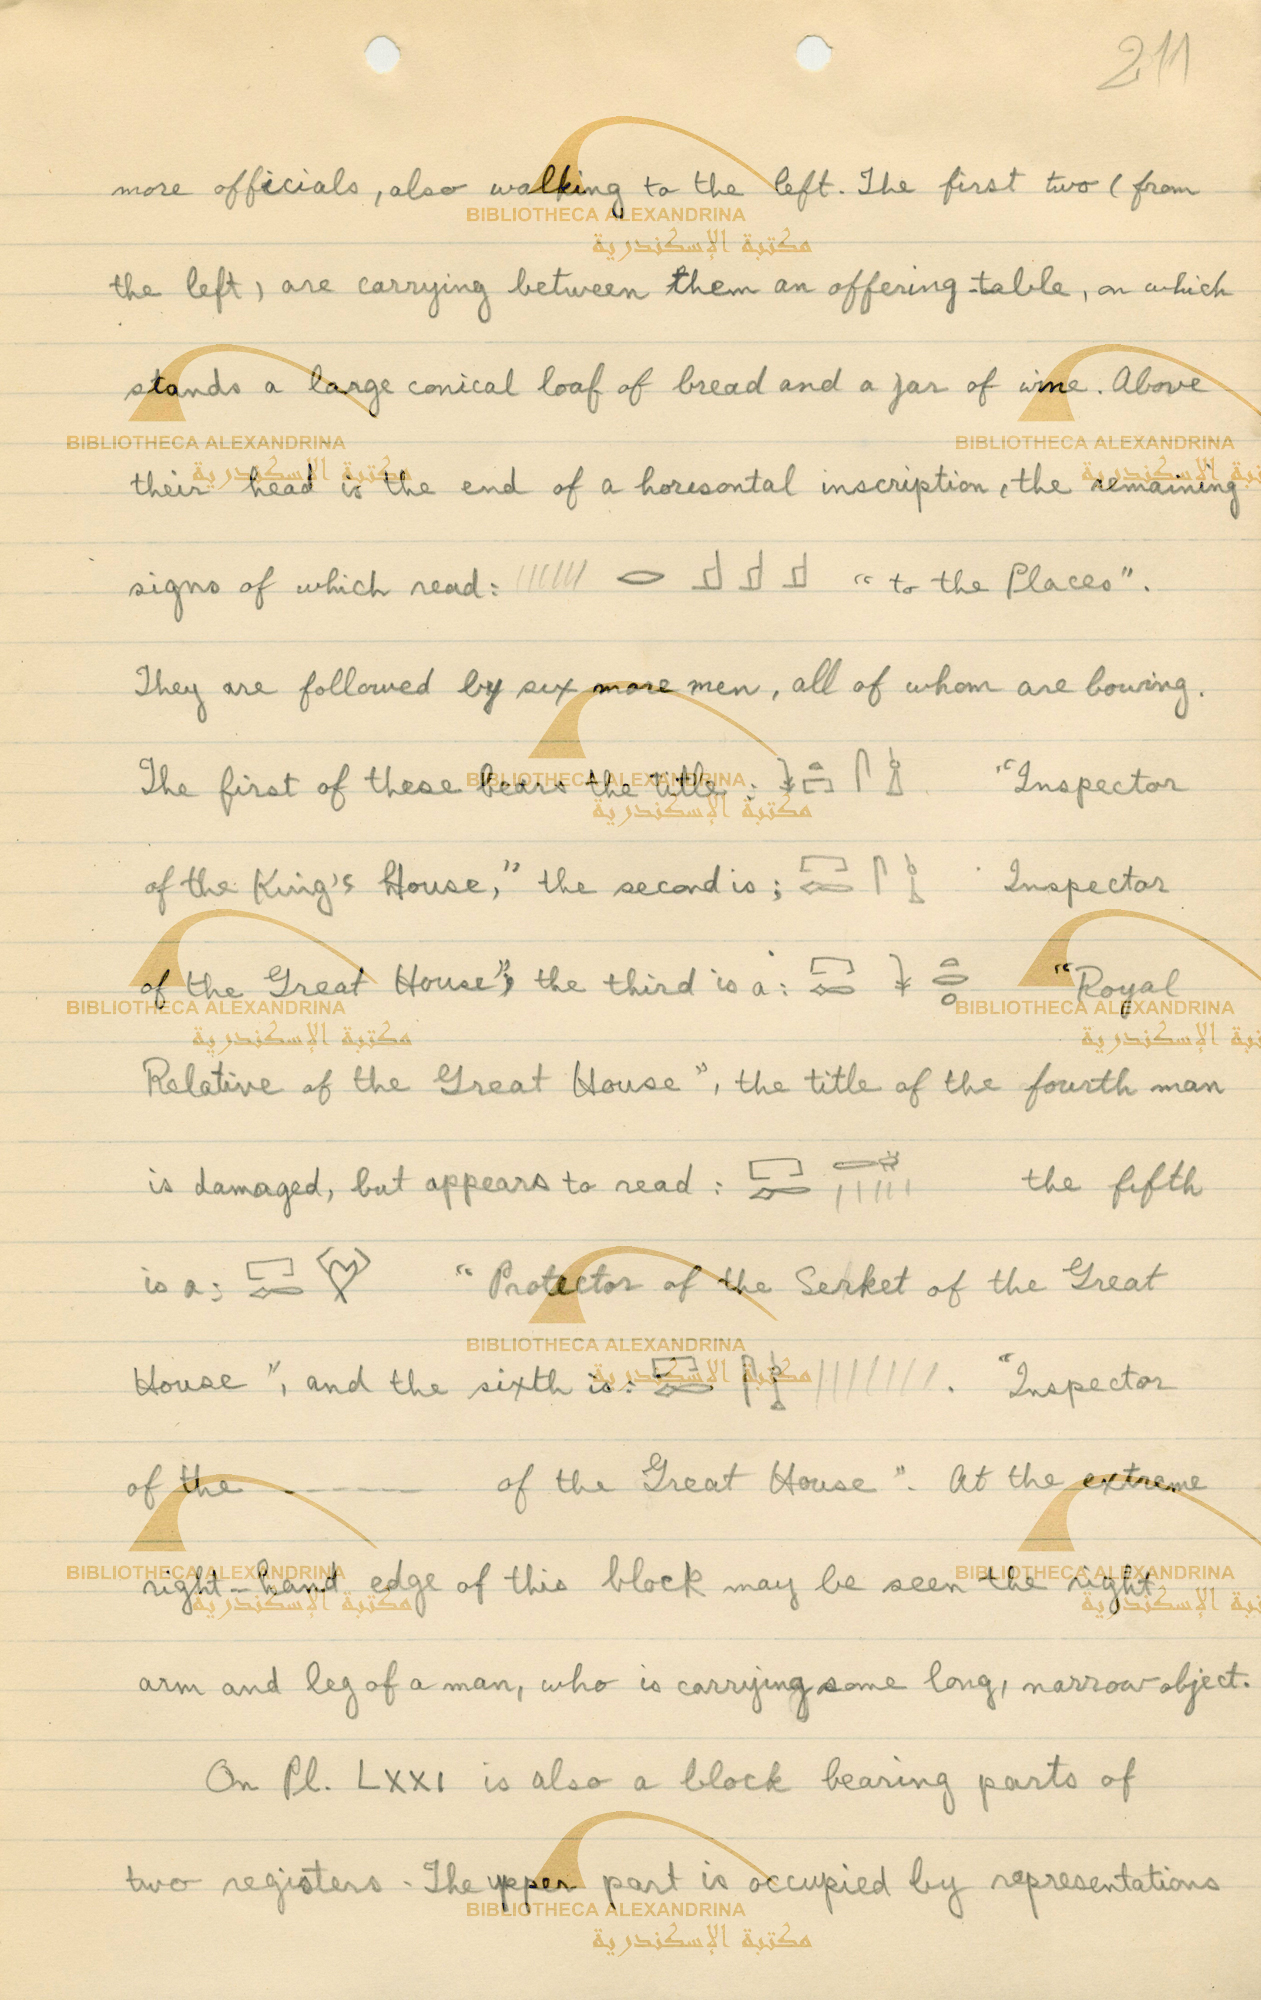 211
more officials, also walking to the left. The first two (from
the left) are carrying between them an offering-table, on which
stands a large conical loaf of bread and a jar of wine. Above
their head is the end of a horisontal inscription, the remaining
signs of which read: 𓂋 𓊨 𓊨 𓊨 "to the Places".
They are followed by six more men, all of whom are bowing.
The first of these bears the title: "Inspector
of the King's House," the second is; Inspector
of the Great House"; the third is a: "Royal
Relative of the Great House", the title of the fourth man
is damaged, but appears to read: the fifth
is a; "Protector of the Serket of the Great
House", and the sixth is: . "Inspector
of the ------ of the Great House". At the extreme
right-hand edge of this block may be seen the right
arm and leg of a man, who is carrying some long, narrow object.
On Pl. LXXI is also a block bearing parts of
two registers. The upper part is occupied by representations
BIBLIOTHECA ALEXANDRINA
مكتبة الإسكندرية